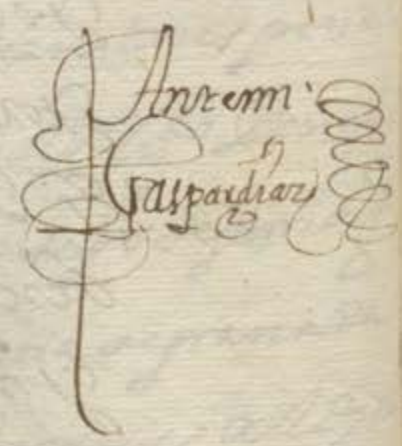 Ante mi
Gaspar diaz